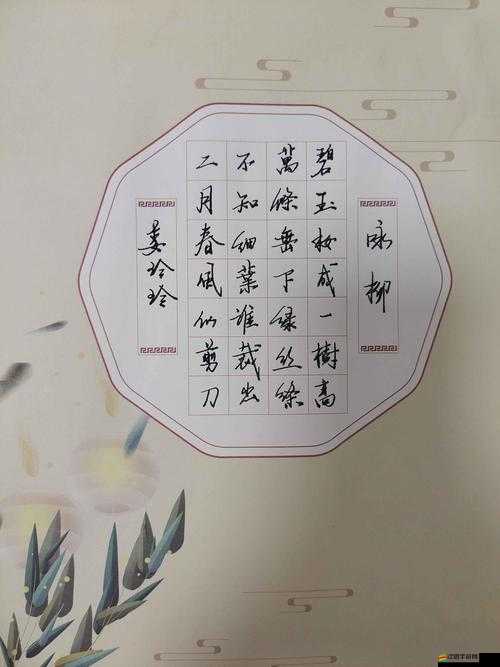 咏柳
碧玉妝成一樹高
萬條垂下绿丝絛
不知细葉谁裁出
二月春风似剪刀
娄玲玲